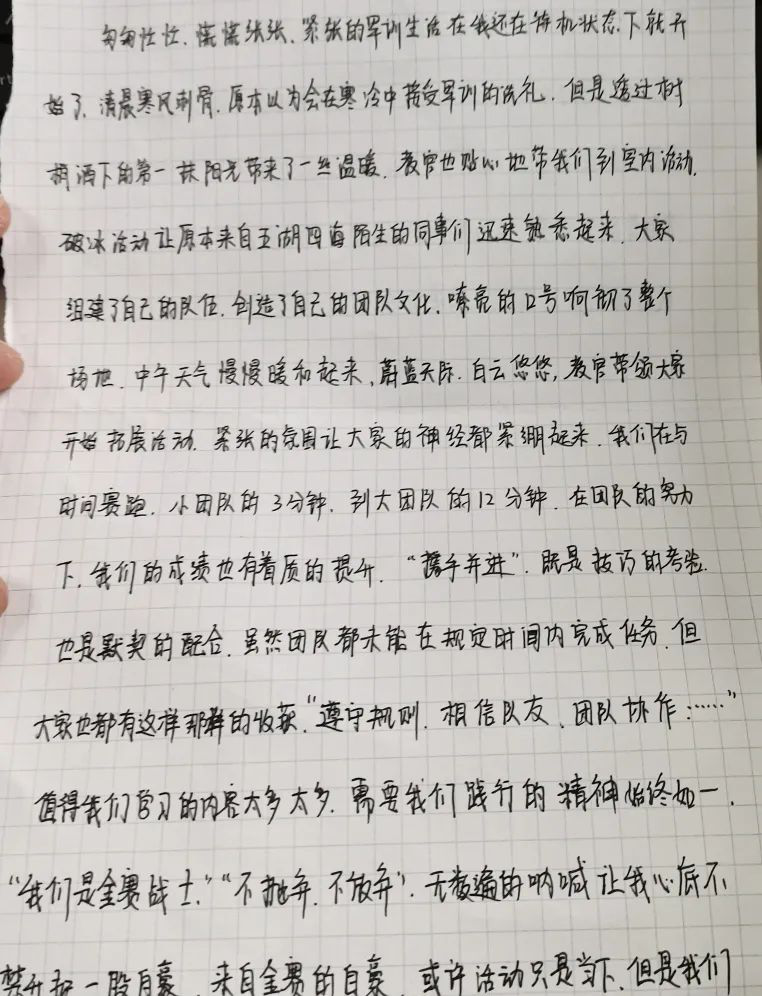 匆匆忙忙、慌慌张张、紧张的军训生活在我还在待机状态下就开
始了、清晨寒风刺骨、原本以为会在寒冷中接受军训的洗礼、但是透过树
梢洒下的第一抹阳光带来了一丝温暖、教官也贴心地带我们到室内活动、
破冰活动让原本来自五湖四海陌生的同事们迅速熟悉起来、大家
组建了自己的队伍、创造了自己的团队文化、嘹亮的口号响彻了整个
场地、中午天气慢慢暖和起来、蔚蓝天际、白云悠悠,教官带领大家
开始拓展活动、紧张的氛围让大家的神经都紧绷起来、我们在与
时间赛跑、小团队的3分钟、到大团队的12分钟、在团队的努力
下、我们的成绩也有着质的提升、“携手并进”、既是技巧的考验、
也是默契的配合、虽然团队都未能在规定时间内完成任务、但
大家也都有这样那样的收获、“遵守规则、相信队友、团队协作……”
值得我们学习的内容太多太多、需要我们践行的精神始终如一、
“我们是金赛战士、”“不抛弃、不放弃”、无数遍的呐喊让我心底不
禁升起一股自豪、来自金赛的自豪、或许活动只是当下、但是我们